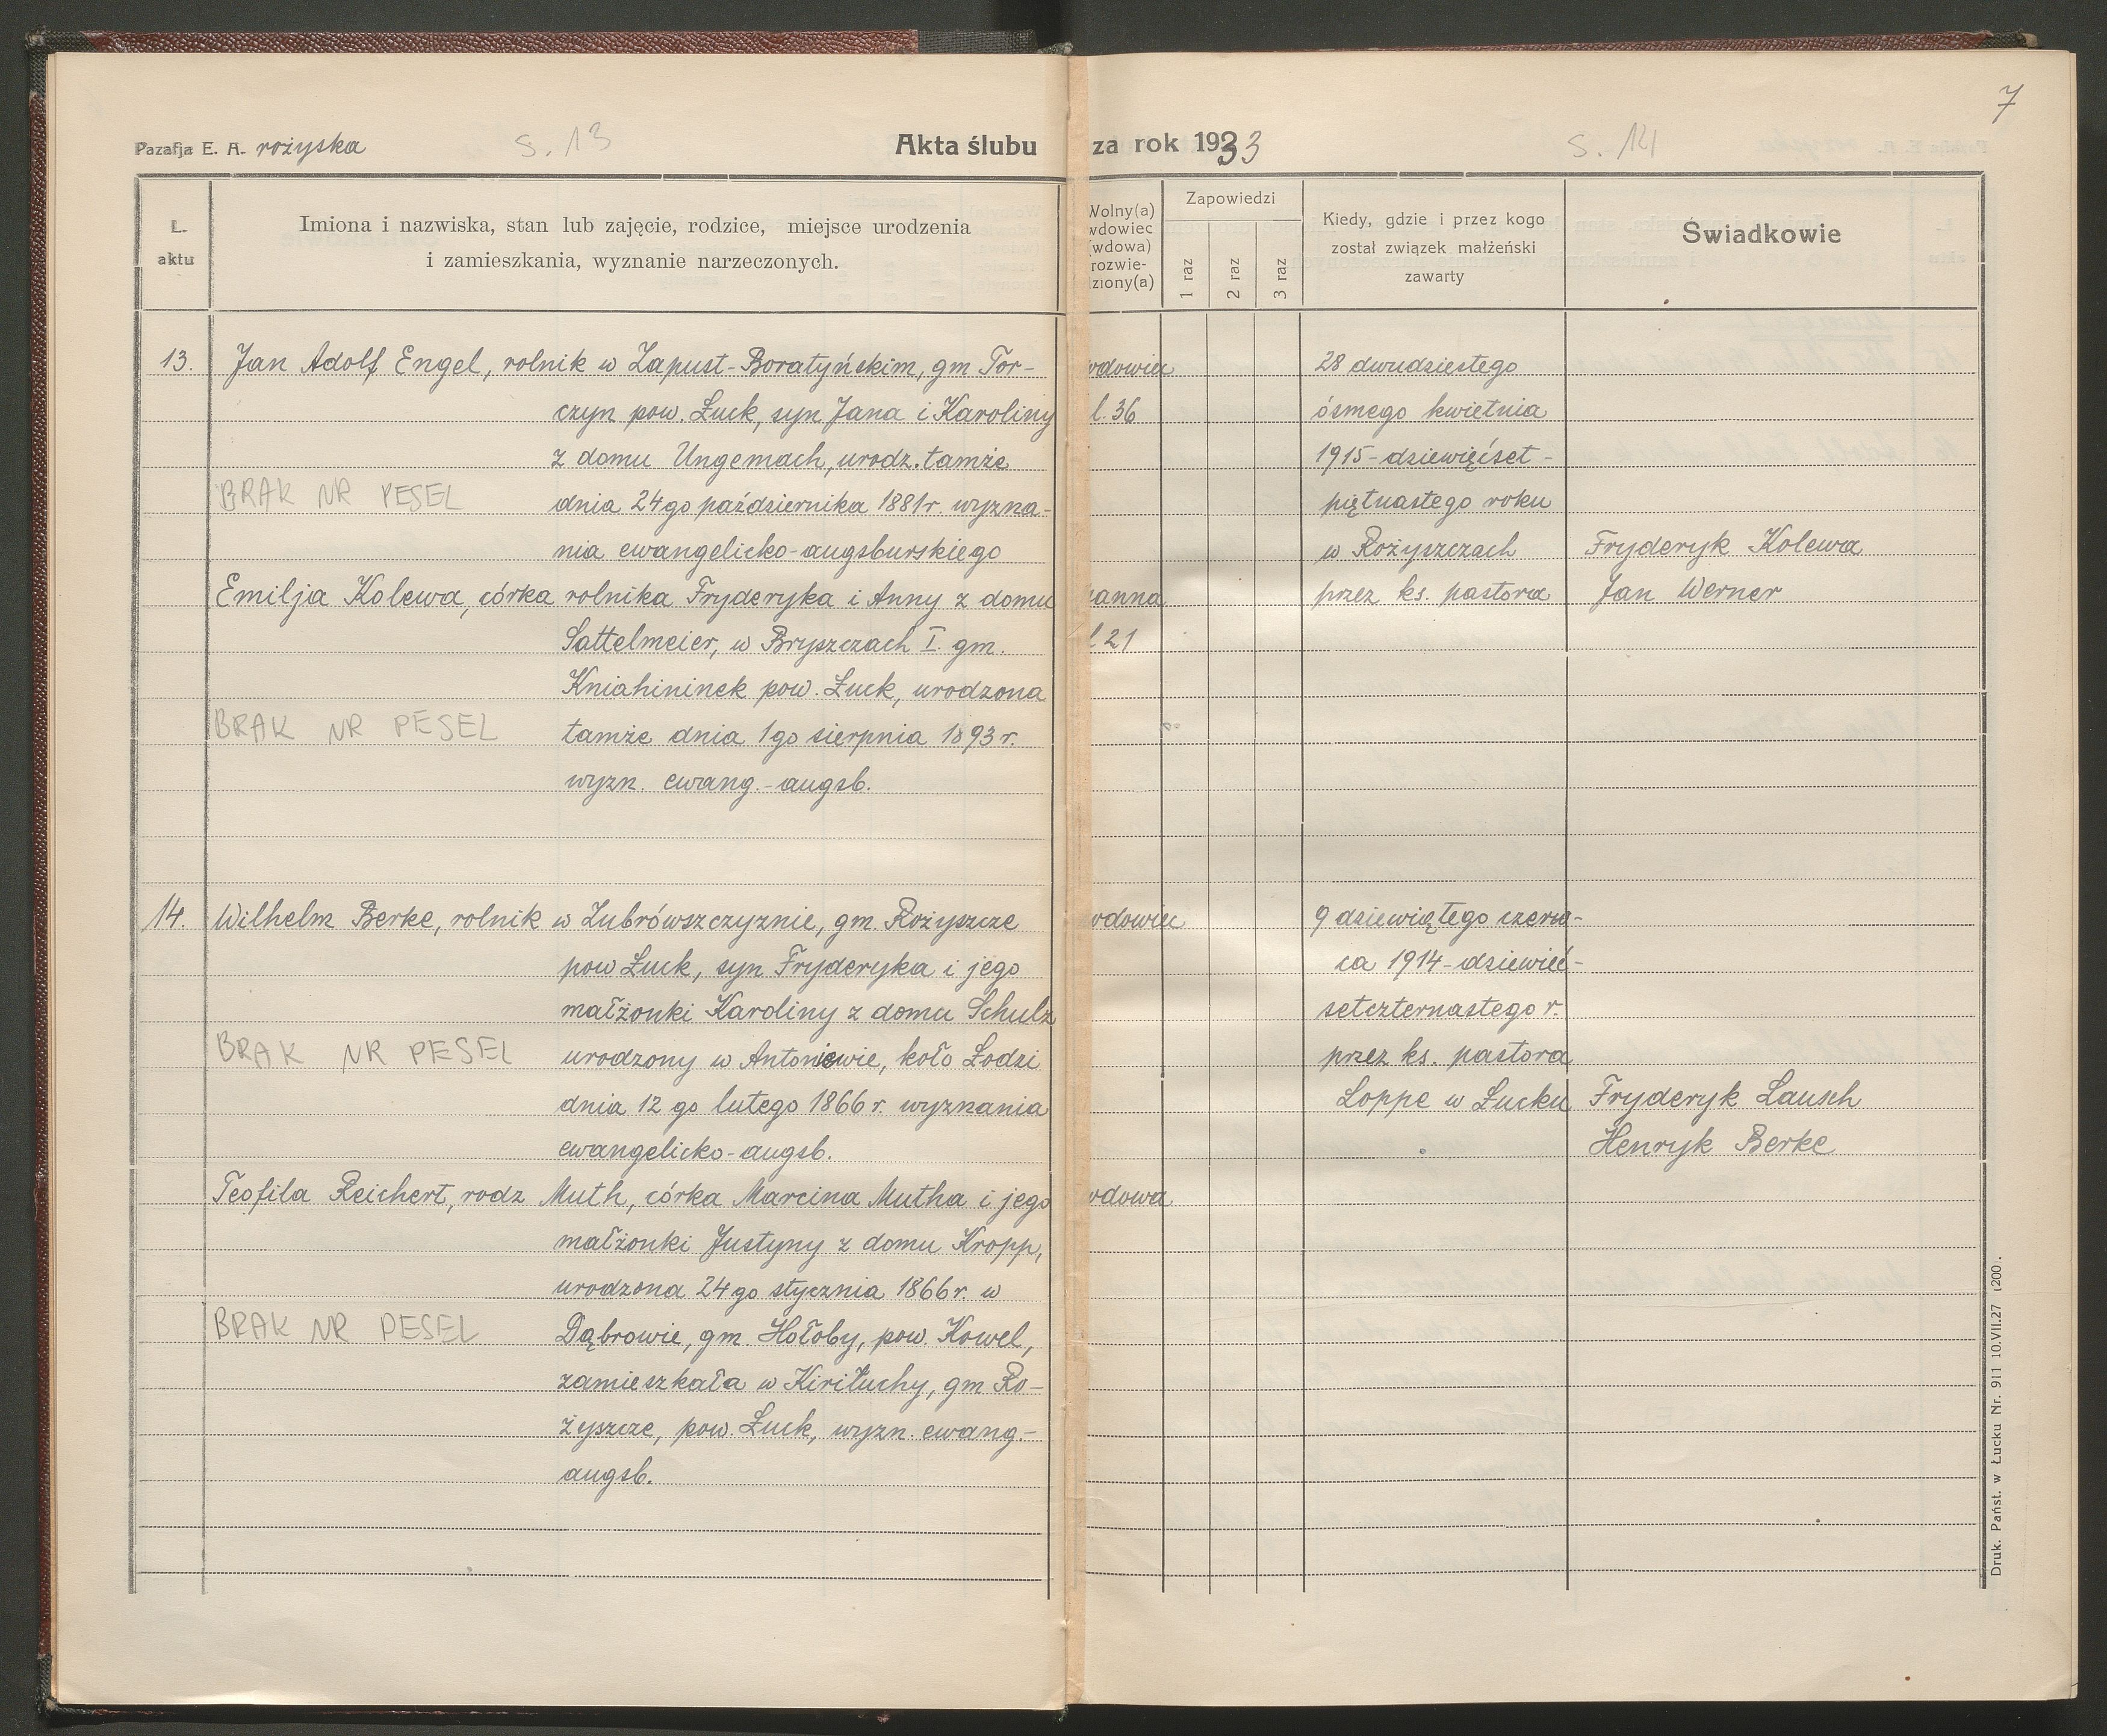 7
Pazafja E. A. rożyska
s. 13
Akta ślubu
za rok 1933
s. 14
L. aktu
Imiona i nazwiska, stan lub zajęcie, rodzice, miejsce urodzenia
i zamieszkania, wyznanie narzeczonych.
Wolny(a)
wdowiec
(wdowa)
rozwie-
dziony(a)
Zapowiedzi
1 raz
2 raz
3 raz
Kiedy, gdzie i przez kogo
został związek małżeński
zawarty
Świadkowie
13.
Jan Adolf Engel, rolnik w Zapust-Boratyńskim, gm Tor-
czyn pow. Łuck, syn Jana i Karoliny
z domu Ungemach, urodz. tamże
BRAK NR PESEL
dnia 24go października 1881r. wyzna-
nia ewangelicko-augsburskiego
Emilja Kolewa, córka rolnika Fryderyka i Anny z domu
Sattelmeier, w Bryszczach I. gm.
Kniahininek pow. Łuck, urodzona
BRAK NR PESEL
tamże dnia 1go sierpnia 1893r.
wyzn. ewang.-augsb.
wdowiec
l. 36
panna
l 21
28 dwudziestego
ósmego kwietnia
1915-dziewięćset-
piętnastego roku
w Rożyszczach
przez ks. pastora
Fryderyk Kolewa
Jan Werner
14.
Wilhelm Berke, rolnik w Zubrówszczyznie, gm. Rożyszcze
pow Łuck, syn Fryderyka i jego
małżonki Karoliny z domu Schulz
BRAK NR PESEL
urodzony w Antoniewie, koło Łodzi
dnia 12 go lutego 1866r. wyznania
ewangelicko-augsb.
Teofila Reichert, rodz Muth, córka Marcina Mutha i jego
małżonki Justyny z domu Kropp,
urodzona 24go stycznia 1866r. w
BRAK NR PESEL
Dąbrowie, gm. Hołoby, pow. Kowel,
zamieszkała w Kiriłuchy, gm Ro-
żyszcze, pow. Łuck, wyzn. ewang.-
augsb.
wdowiec
wdowa
9 dziewiątego czerw-
ca 1914-dziewięć-
setczternastego r.
przez ks. pastora
Loppe w Łucku
Fryderyk Lausch
Henryk Berke
Druk. Państ. w Łucku Nr. 911 10.VII.27 (200.